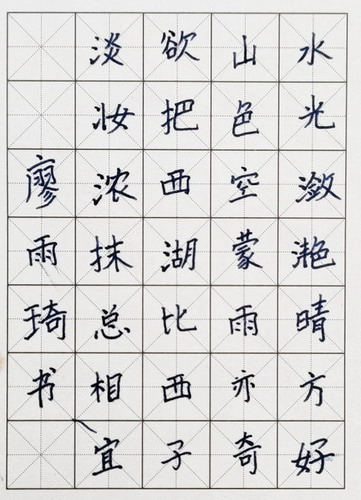 水光潋滟晴方好
山色空蒙雨亦奇
欲把西湖比西子
淡妆浓抹总相宜
廖雨琦书